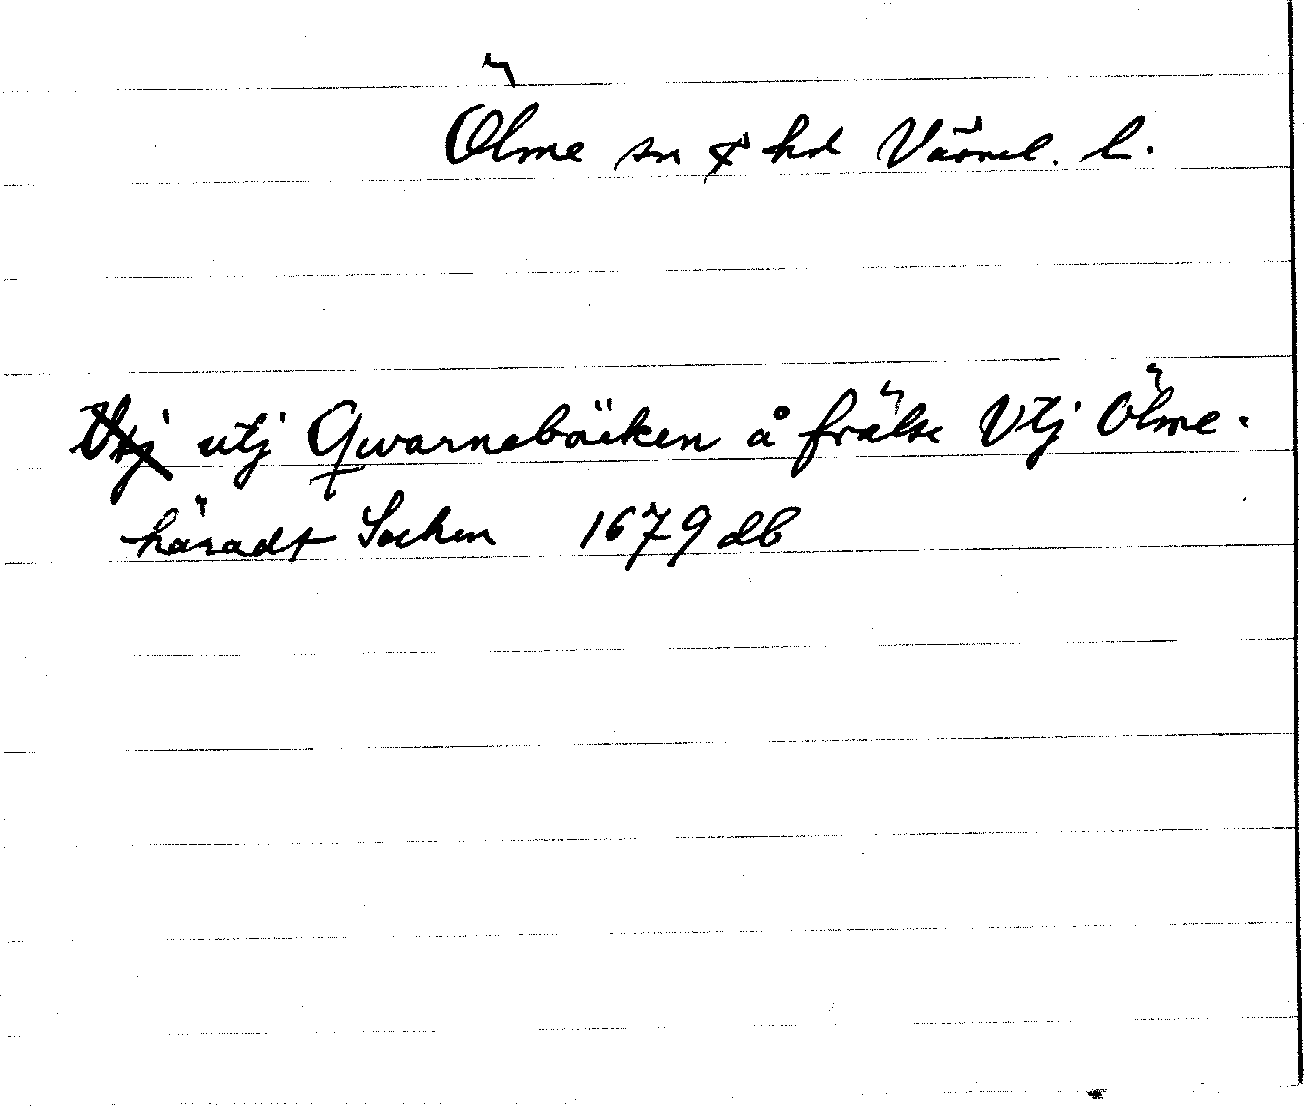 Ölme sn & hd Värml. l.
utj Qwarnebäcken å frälse Vtj Ölme-
häradt Sochen 1679 db